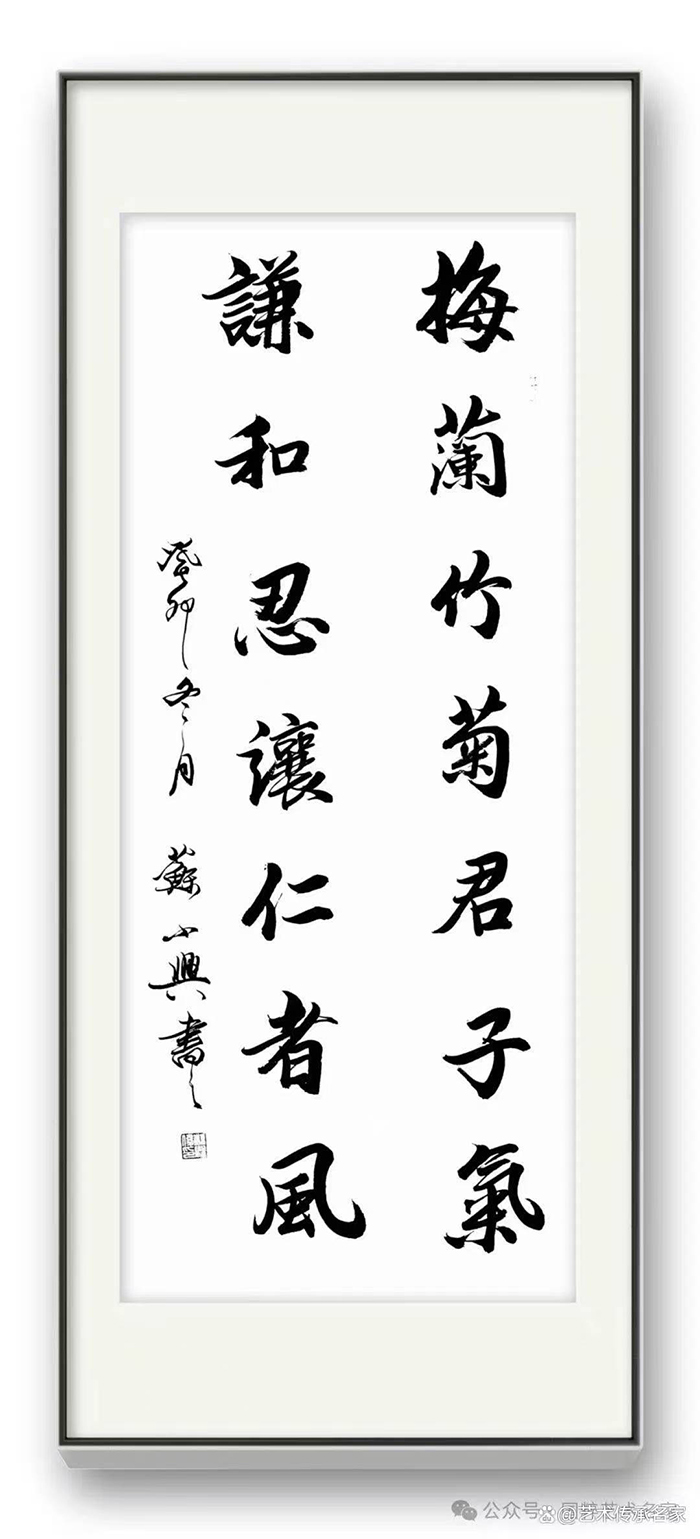 梅蘭竹菊君子氣
謙和忍讓仁者風
癸卯冬月 蘇小興書之
公众号
@艺术传承名家